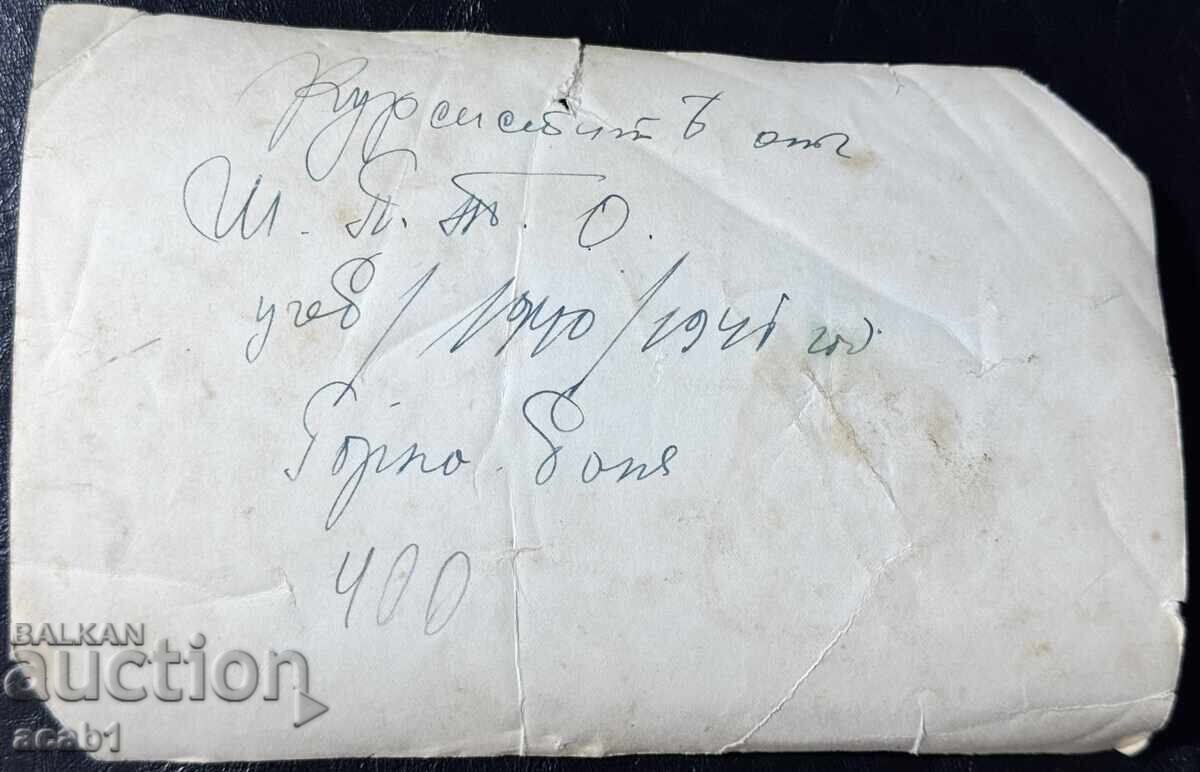 Курсиститѣ отъ
Ш. П. Т. О.
учеб/1940/1941 год
Горно. Баня
400
BALKAN
auction
acab1